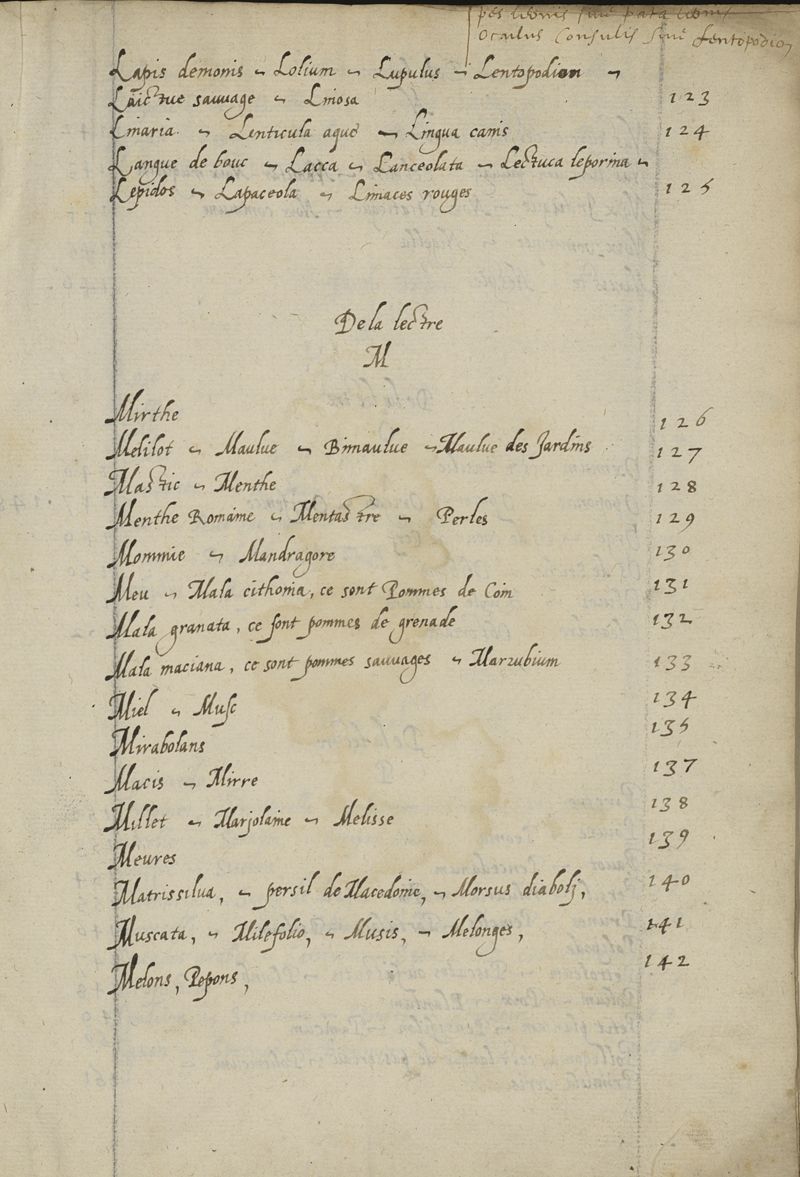 pes leonis siue pata leonis
Oculus Consulis siue Lentopodion
Lapis demonis ~ Lolium ~ Lupulus ~ Lentopodion ~
Laictue sauuage ~ Linosa 123
Linaria ~ Lenticula aque ~ Lingua canis 124
Langue de bouc ~ Lacca ~ Lanceolata ~ Lectuca leporina ~
Lepidos ~ Lapaceola ~ Limaces rouges 125
De la lectre
M
Mirthe 126
Melilot ~ Maulue ~ Bimaulue ~ Maulue des Jardins 127
Mastic ~ Menthe 128
Menthe Romaine ~ Mentastre ~ Perles 129
Mommie ~ Mandragore 130
Meu ~ Mala cithonia, ce sont Pommes de Coin 131
Mala granata, ce sont pommes de grenade 132
Mala maciana, ce sont pommes sauuages ~ Marrubium 133
Miel ~ Musc 134
Mirabolans 135
Macis ~ Mirre 137
Millet ~ Marjolaine ~ Melisse 138
Meures 139
Matrissilua, ~ persil de Macedoine, ~ Morsus diabolj, 140
Muscata, ~ Milefolio, ~ Musis, ~ Melonges, 141
Melons, Pepons, 142